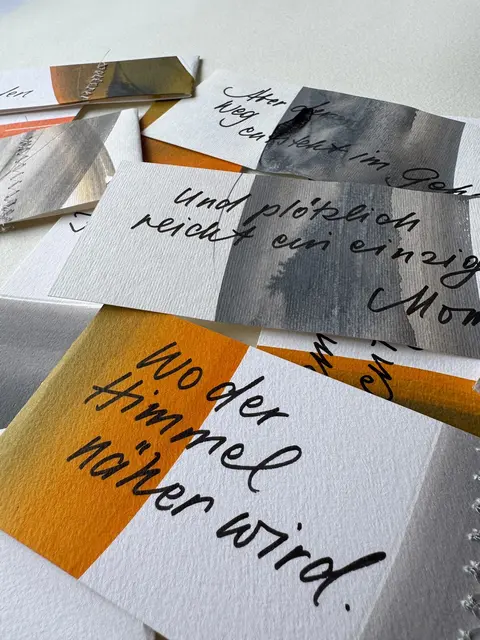 Aber der
Weg
entsteht im Geh
Und plötzlich
reicht ein einzig
Mom
Wo der
Himmel
näher wird.